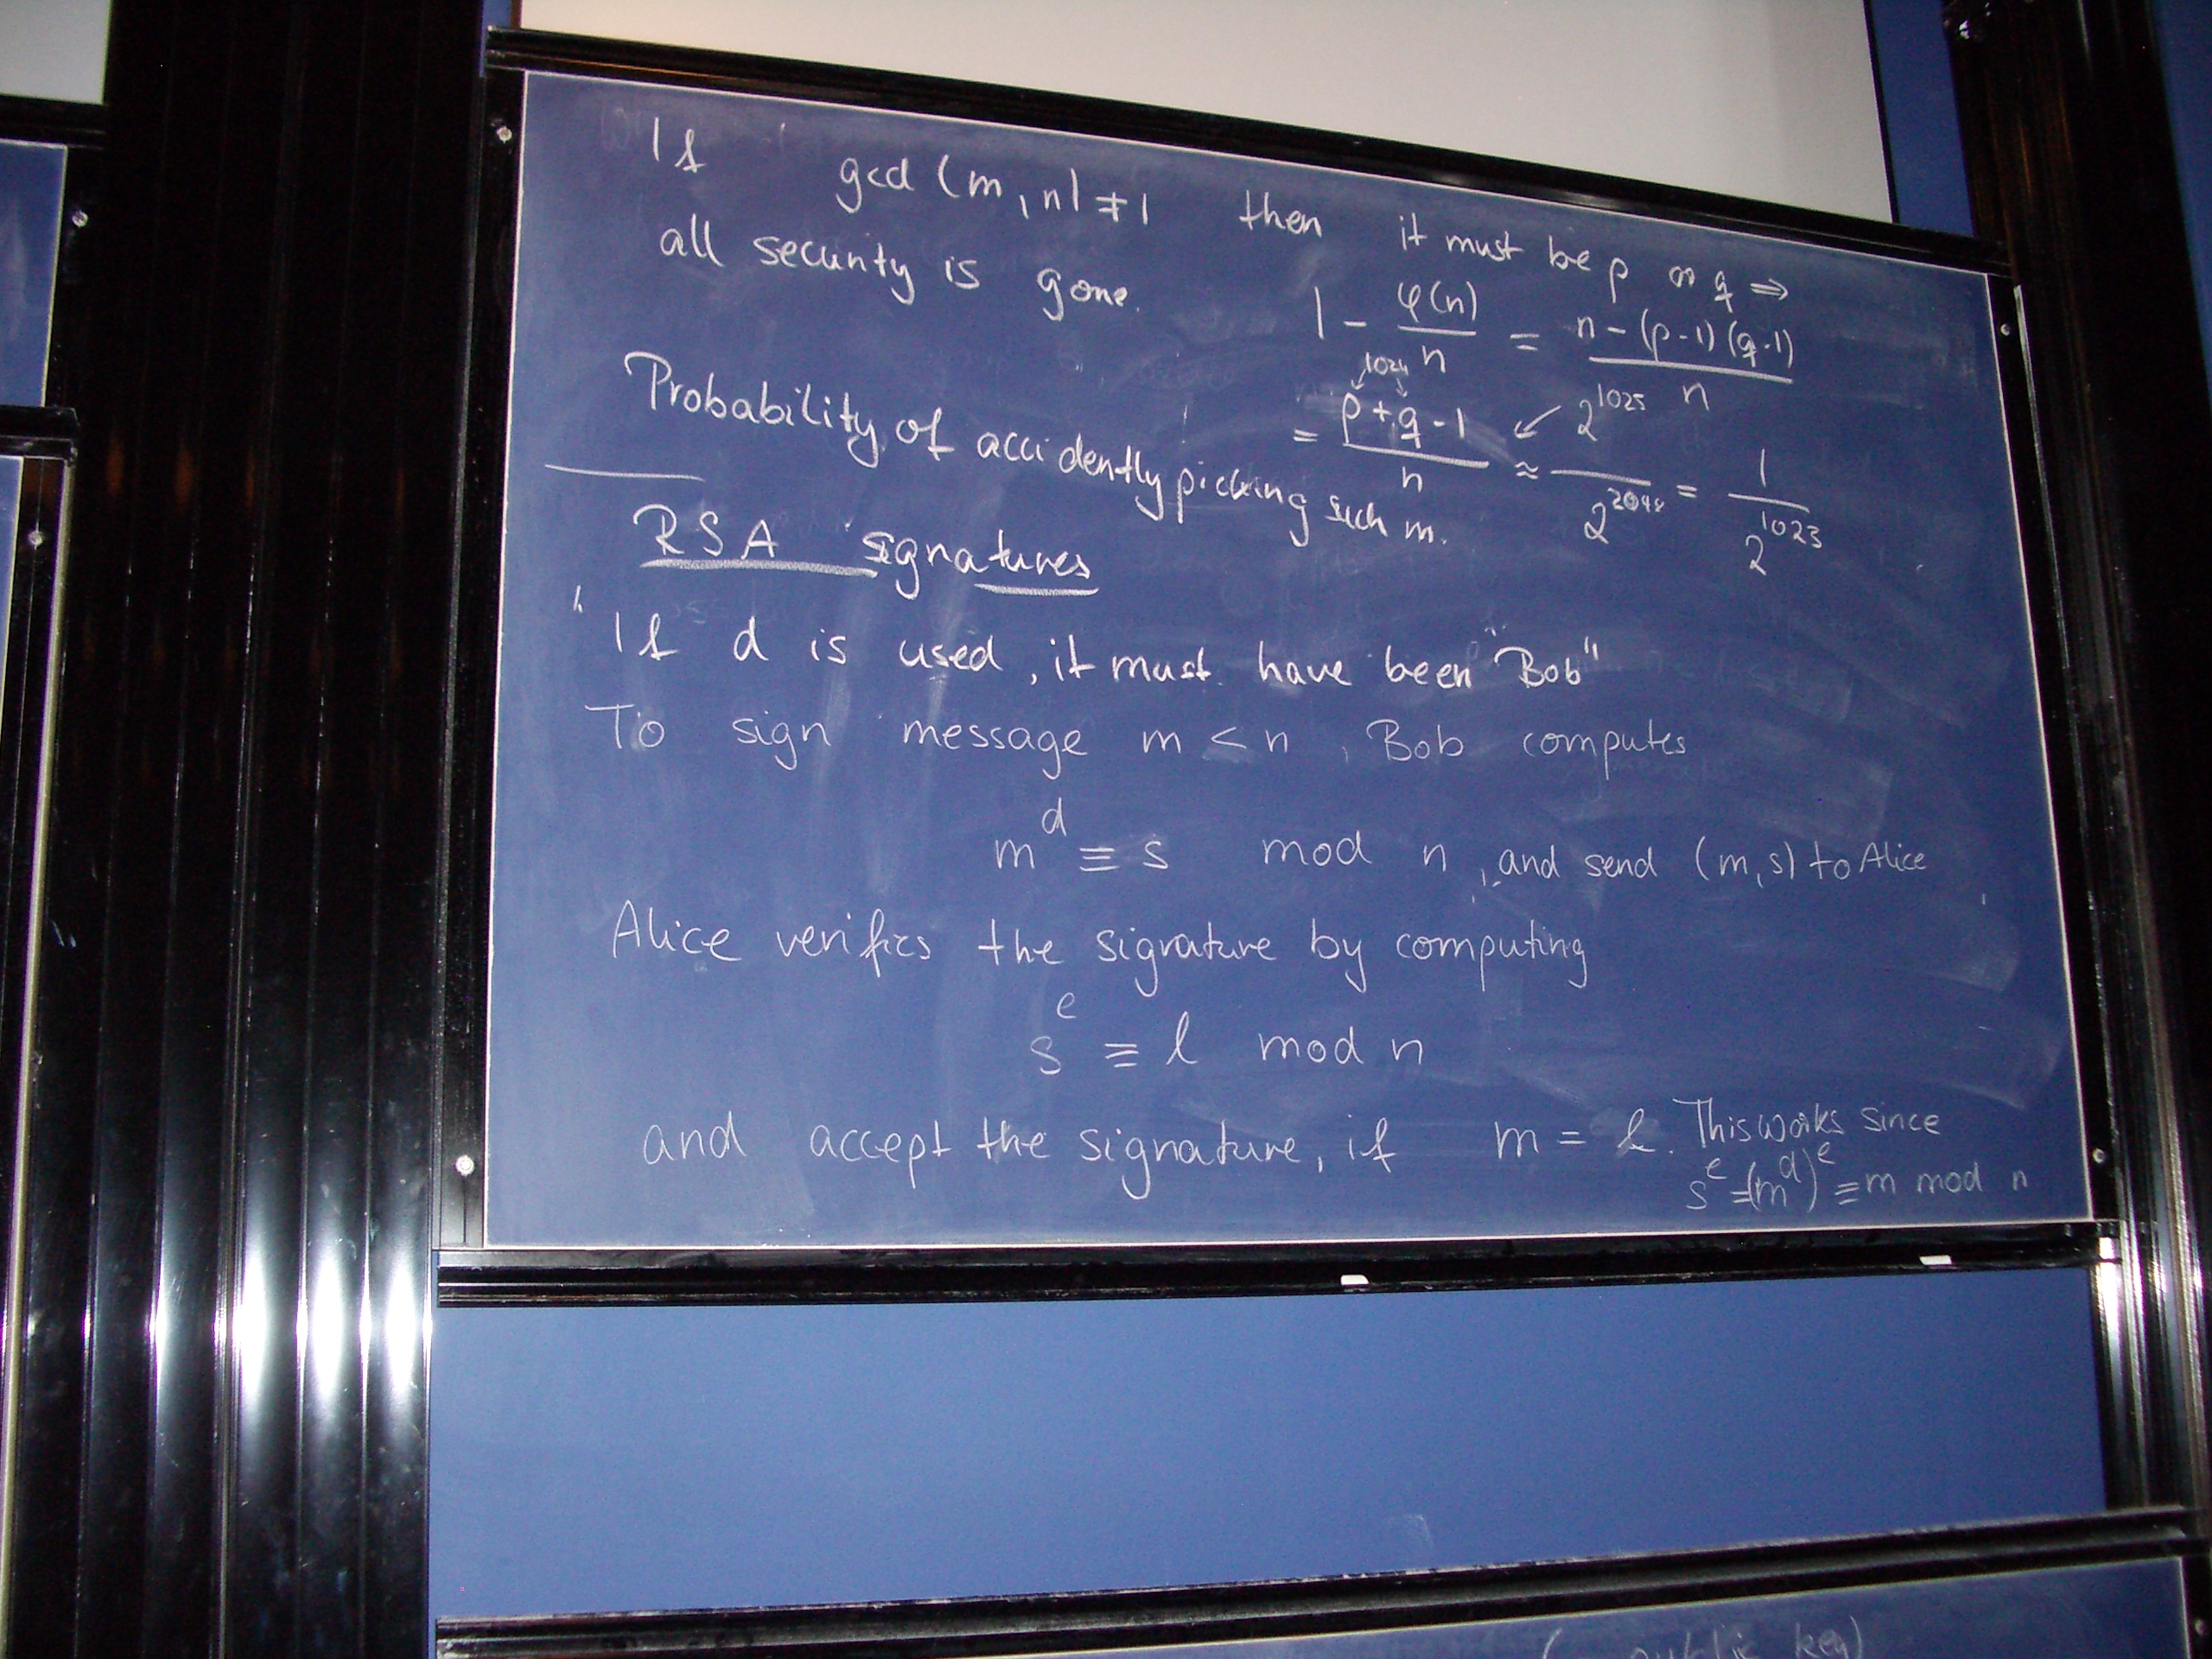 If gcd (m, n) ≠ 1 then it must be p or q ⇒
all security is gone.
1 - φ(n)/n = n-(p-1)(q-1)/n
Probability of accidently picking such m.
1024
= p+q-1/n ≈ 2^1025/2^2048 = 1/2^1023
RSA signatures
"If d is used, it must have been "Bob"
To sign message m < n, Bob computes
m^d ≡ s mod n, and send (m,s) to Alice
Alice verifies the signature by computing
s^e ≡ l mod n
and accept the signature, if m = l. This works since
s^e = (m^d)^e ≡ m mod n
( public key)